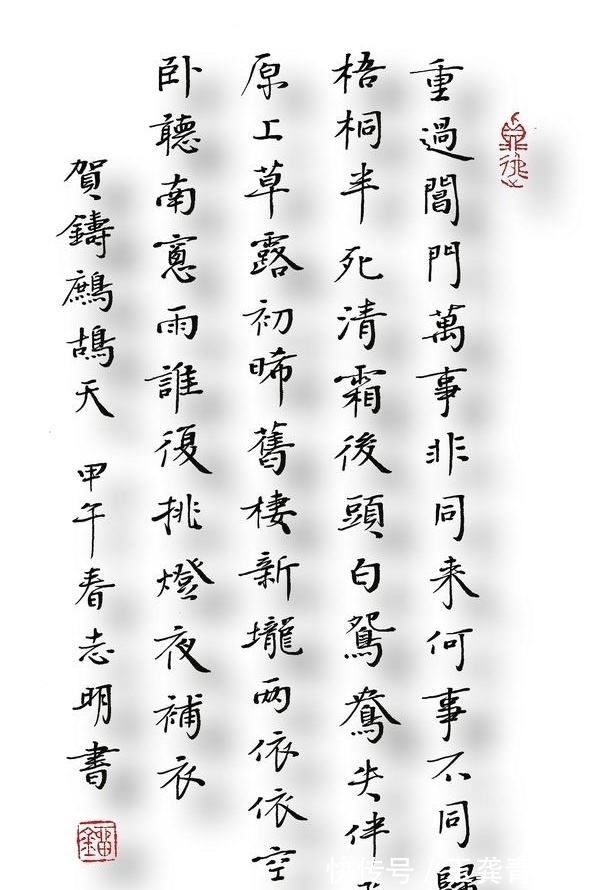 重過閶門萬事非同来何事不同歸
梧桐半死清霜後頭白鴛鴦失伴
原上草露初晞舊棲新壠兩依依空
卧聽南窓雨誰復挑燈夜補衣
賀鑄鷓鴣天 甲午春志明書
快传号 /